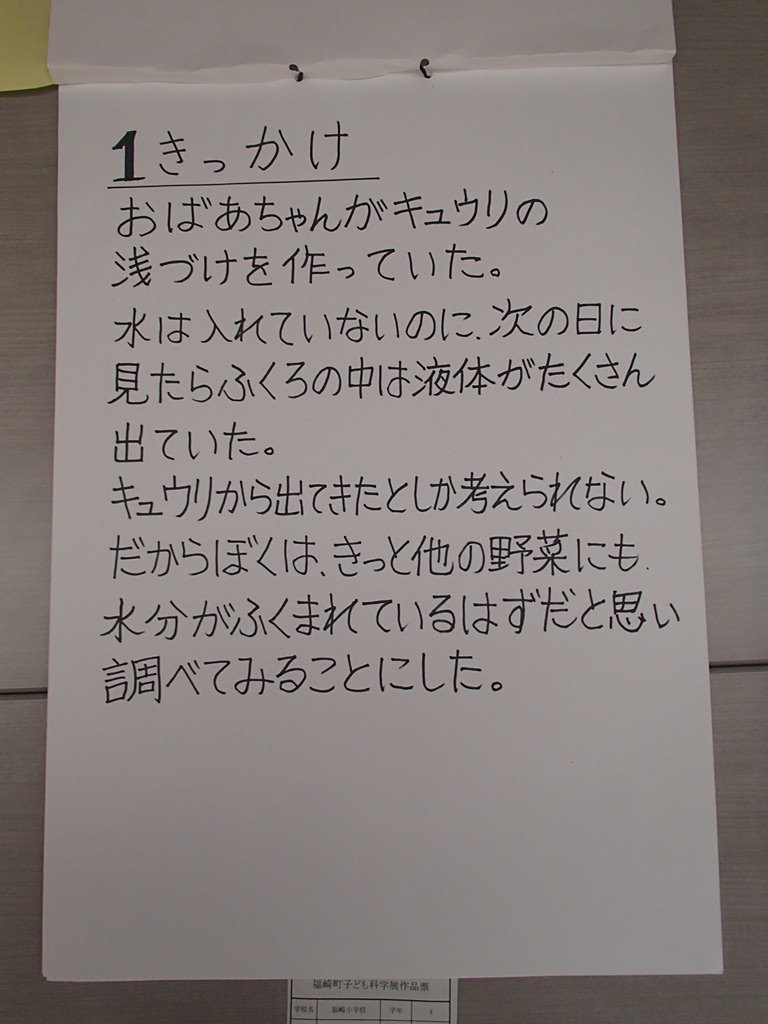 1 きっかけ
おばあちゃんがキュウリの
浅づけを作っていた。
水は入れていないのに、次の日に
見たらふくろの中は液体がたくさん
出ていた。
キュウリから出てきたとしか考えられない。
だからぼくは、きっと他の野菜にも
水分がふくまれているはずだと思い
調べてみることにした。
福崎町子ども科学展作品票
学校名 福崎小学校 学年 4